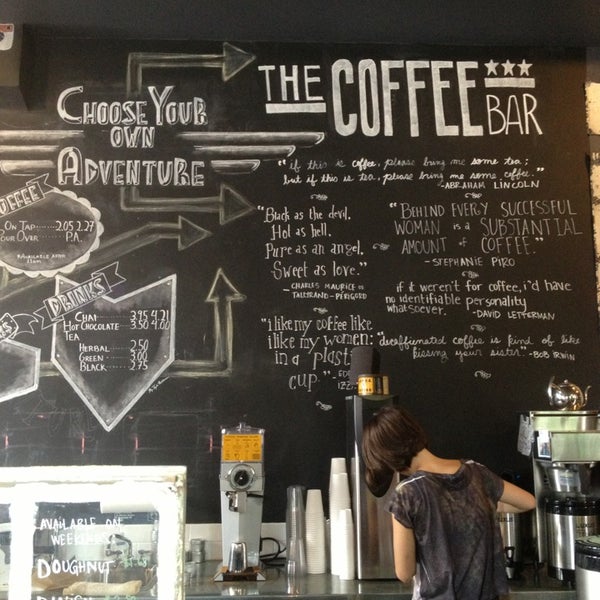 CHOOSE YOUR
OWN
ADVENTURE
THE COFFEE BAR
"if this is coffee, please bring me some tea;
but if this is tea, please bring me some coffee."
-ABRAHAM LINCOLN
"Black as the devil,
Hot as hell,
Pure as an angel,
Sweet as love."
- CHARLES MAURICE de
TALLEYRAND-PÉRIGORD
"BEHIND EVERY SUCCESSFUL
WOMAN is a SUBSTANTIAL
AMOUNT of COFFEE."
-STEPHANIE PIRO
if it weren't for coffee, i'd have
no identifiable personality
whatsoever.
-DAVID LETTERMAN
"i like my coffee like
i like my women:
in a plastic
cup."
"decaffeinated coffee is kind of like
kissing your sister." -BOB IRWIN
ON TAP 2.05 2.27
OVER P.A.
DRINKS
CHAI 3.75 4.21
HOT CHOCOLATE 3.50 4.00
TEA
HERBAL 2.50
GREEN 3.00
BLACK 2.75
AVAILABLE ON
WEEKENDS
DOUGHNUT